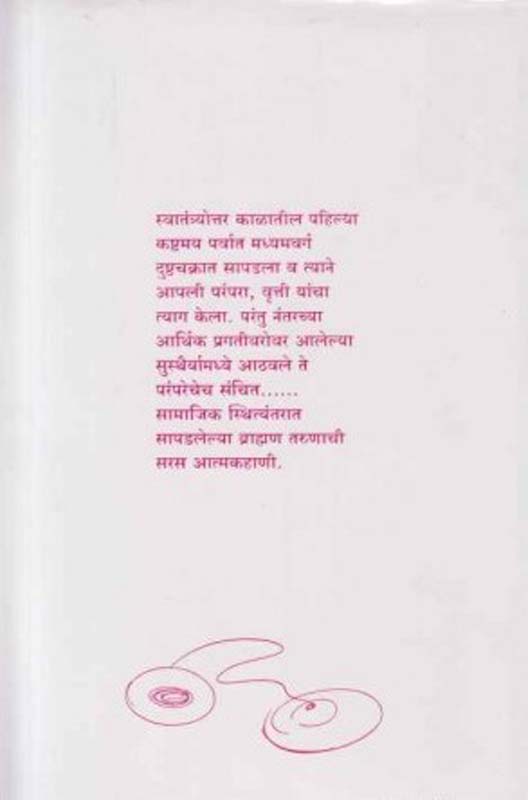 स्वातंत्र्योत्तर काळातील पहिल्या
कष्टमय पर्वात मध्यमवर्ग
दुष्टचक्रात सापडला व त्याने
आपली परंपरा, वृत्ती यांचा
त्याग केला. परंतु नंतरच्या
आर्थिक प्रगतीबरोबर आलेल्या
सुस्थैर्यामध्ये आठवले ते
परंपरेचेच संचित......
सामाजिक स्थित्यंतरात
सापडलेल्या ब्राह्मण तरुणाची
सरस आत्मकहाणी.